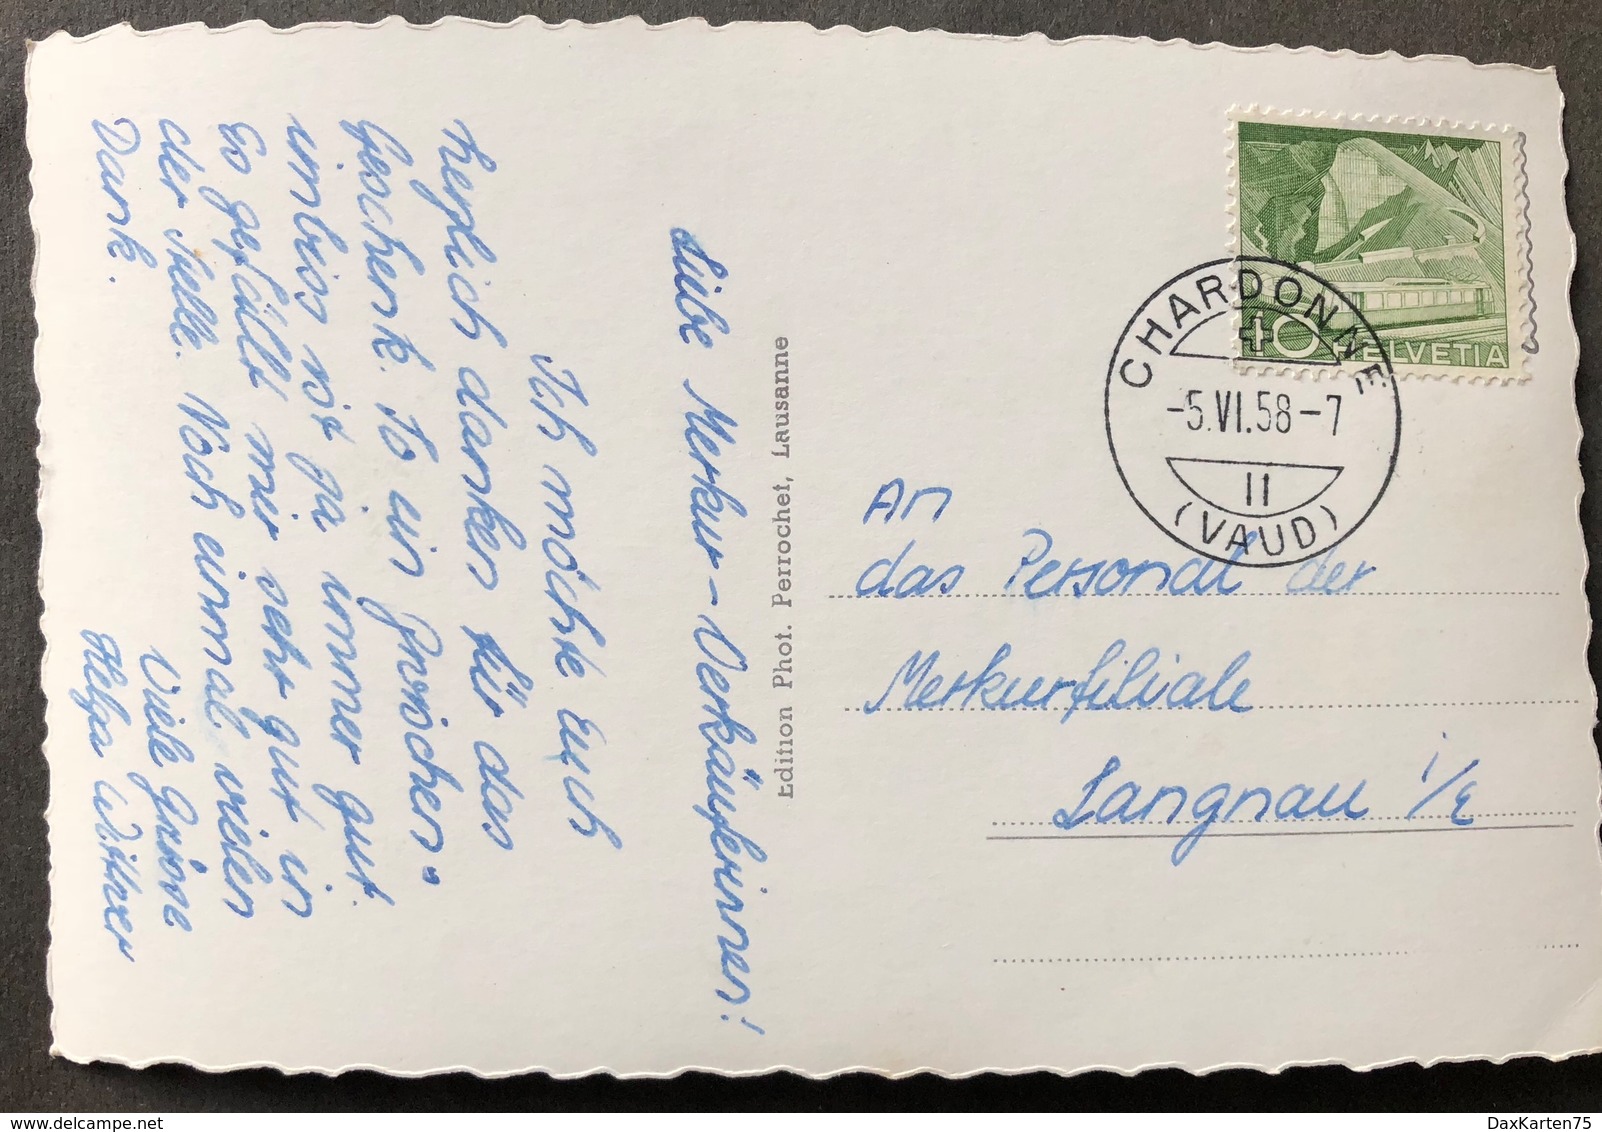 Liebe Merkur-Verkäuferinnen!
Ich möchte Euch
herzlich danken für das
Geschenk. So ein "Grösschen"
nimmt ja immer gut.
Es gefällt mir sehr gut in
der Stelle. Noch einmal vielen
Dank.
Viele Grüsse
Helga Wittwer
Edition Phot. Perrochet, Lausanne
HELVETIA
10
CHARDONNE
-5.VI.58-7
II
(VAUD)
An
das Personal der
Merkurfiliale
Langnau i/E
DaxKarten75